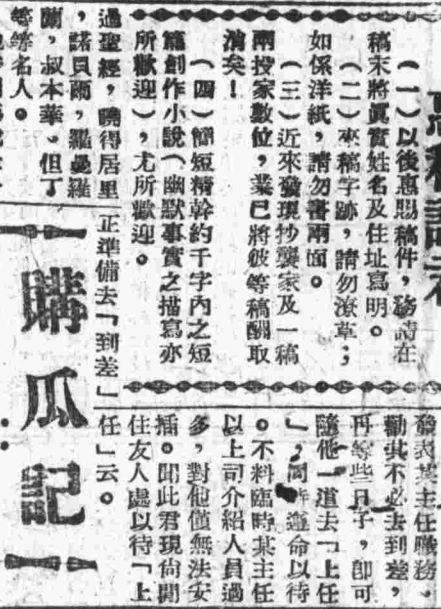 （一）以後惠賜稿件，務請在
稿末將眞實姓名及住址寫明。
（二）來稿字跡，請勿潦草；
如係洋紙，請勿書兩面。
（三）近來發現抄襲家及一稿
兩投家數位，業已將彼等稿酬取
消矣！
（四）簡短精幹約千字內之短
篇創作小說（幽默事實之描寫亦
所歡迎），尤所歡迎。
過聖經，曉得居里
，諾貝爾，羅曼羅
蘭，叔本華。但丁
等等名人。
發表某主任職務。
勸其不必去到差，
再等些日子，卽可
隨他一道去「上任
」，同時運命以待
。不料臨時某主任
以上司介紹人員過
多，對他僅無法安
插。聞此君現尙閒
住友人處以待「上
任」云。
正準備去「到差」
購瓜記